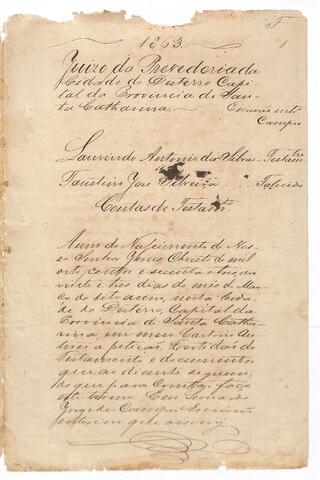 1863.
Juizo da Provedoria da
Cidade do Desterro Capi
tal da Provincia de San
ta Catharina
Escrivão
Campos
Laurindo Antonio da Silva - Testamtro
Faustino José Silveira ... Falecido
Contas de Testamto
Anno do Nascimento de Nos
so Senhor Jesus Christo de mil
oito centos e secenta e tres, aos
vinte e tres dias do mes de Mar
ço do dito anno, nesta Cida
de do Desterro, Capital da
Provincia de Santa Catha
rina, em meu Cartorio au
tuei a petição, Certidão do
Testamento e documentos
que ao diante seguem,
do que para constar faço
este termo. Eu Leonardo
Jorge de Campos Escrivão